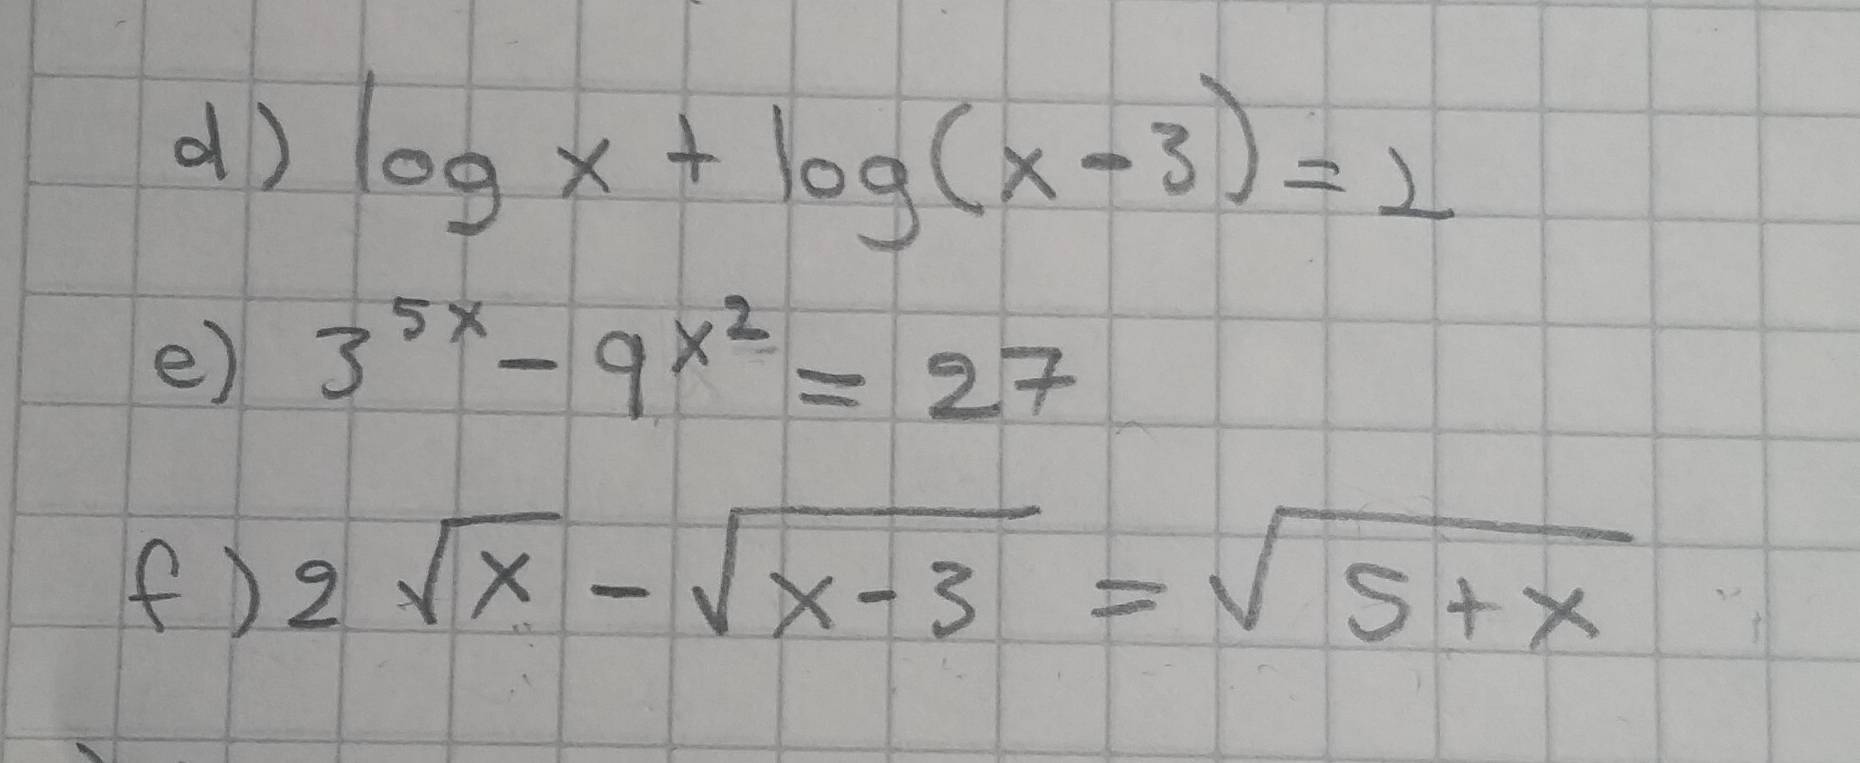 d) log x + log(x-3) = 2
e) 3^{5x} - 9^{x^2} = 27
f) 2√x - √(x-3) = √(5+x)